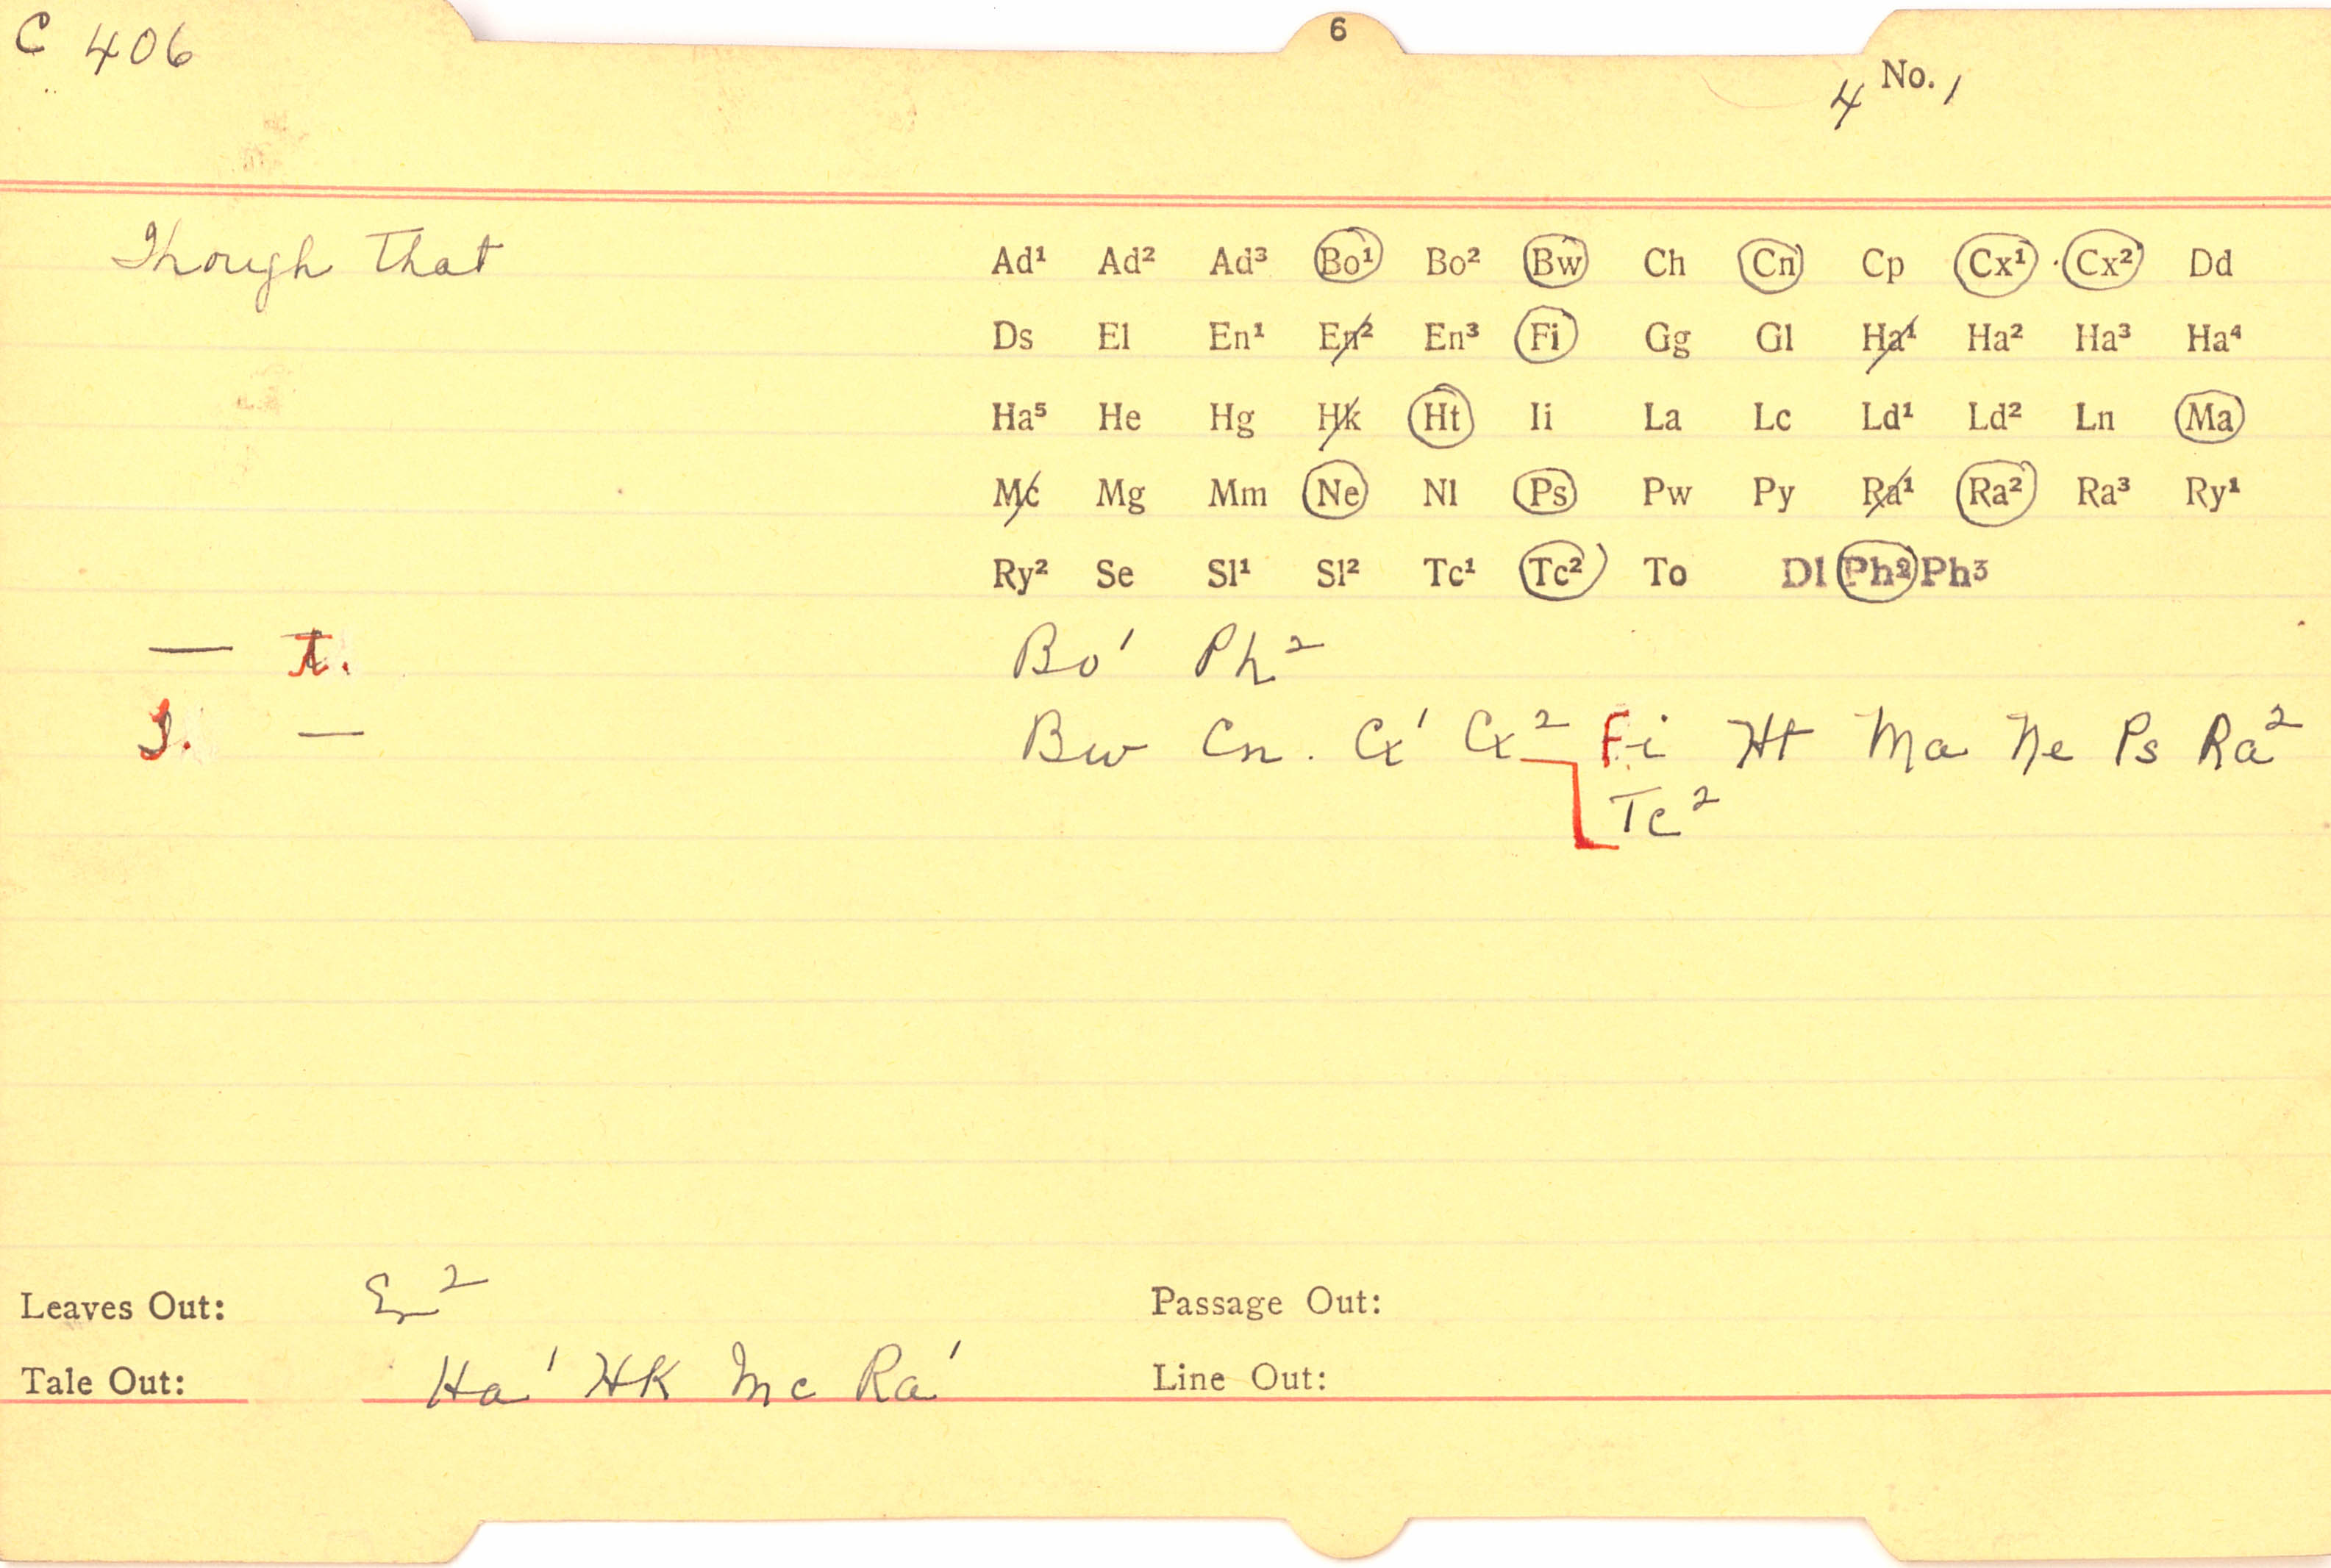 C 406
6
4 No. 1
Though That
Ad¹ Ad² Ad³ Bo¹ Bo² Bw Ch Cn Cp Cx¹ Cx² Dd
Ds El En¹ En² En³ Fi Gg Gl Ha¹ Ha² Ha³ Ha⁴
Ha⁵ He Hg Hk Ht Ii La Lc Ld¹ Ld² Ln Ma
Mc Mg Mm Ne Nl Ps Pw Py Ra¹ Ra² Ra³ Ry¹
Ry² Se Sl¹ Sl² Tc¹ Tc² To Dl Ph² Ph³
— t. Bo¹ Ph²
T. — Bw Cn. Cx¹ Cx² Fi Ht Ma Ne Ps Ra²
Tc²
Leaves Out: En² Passage Out:
Tale Out: Ha¹ Hk Mc Ra¹ Line Out: